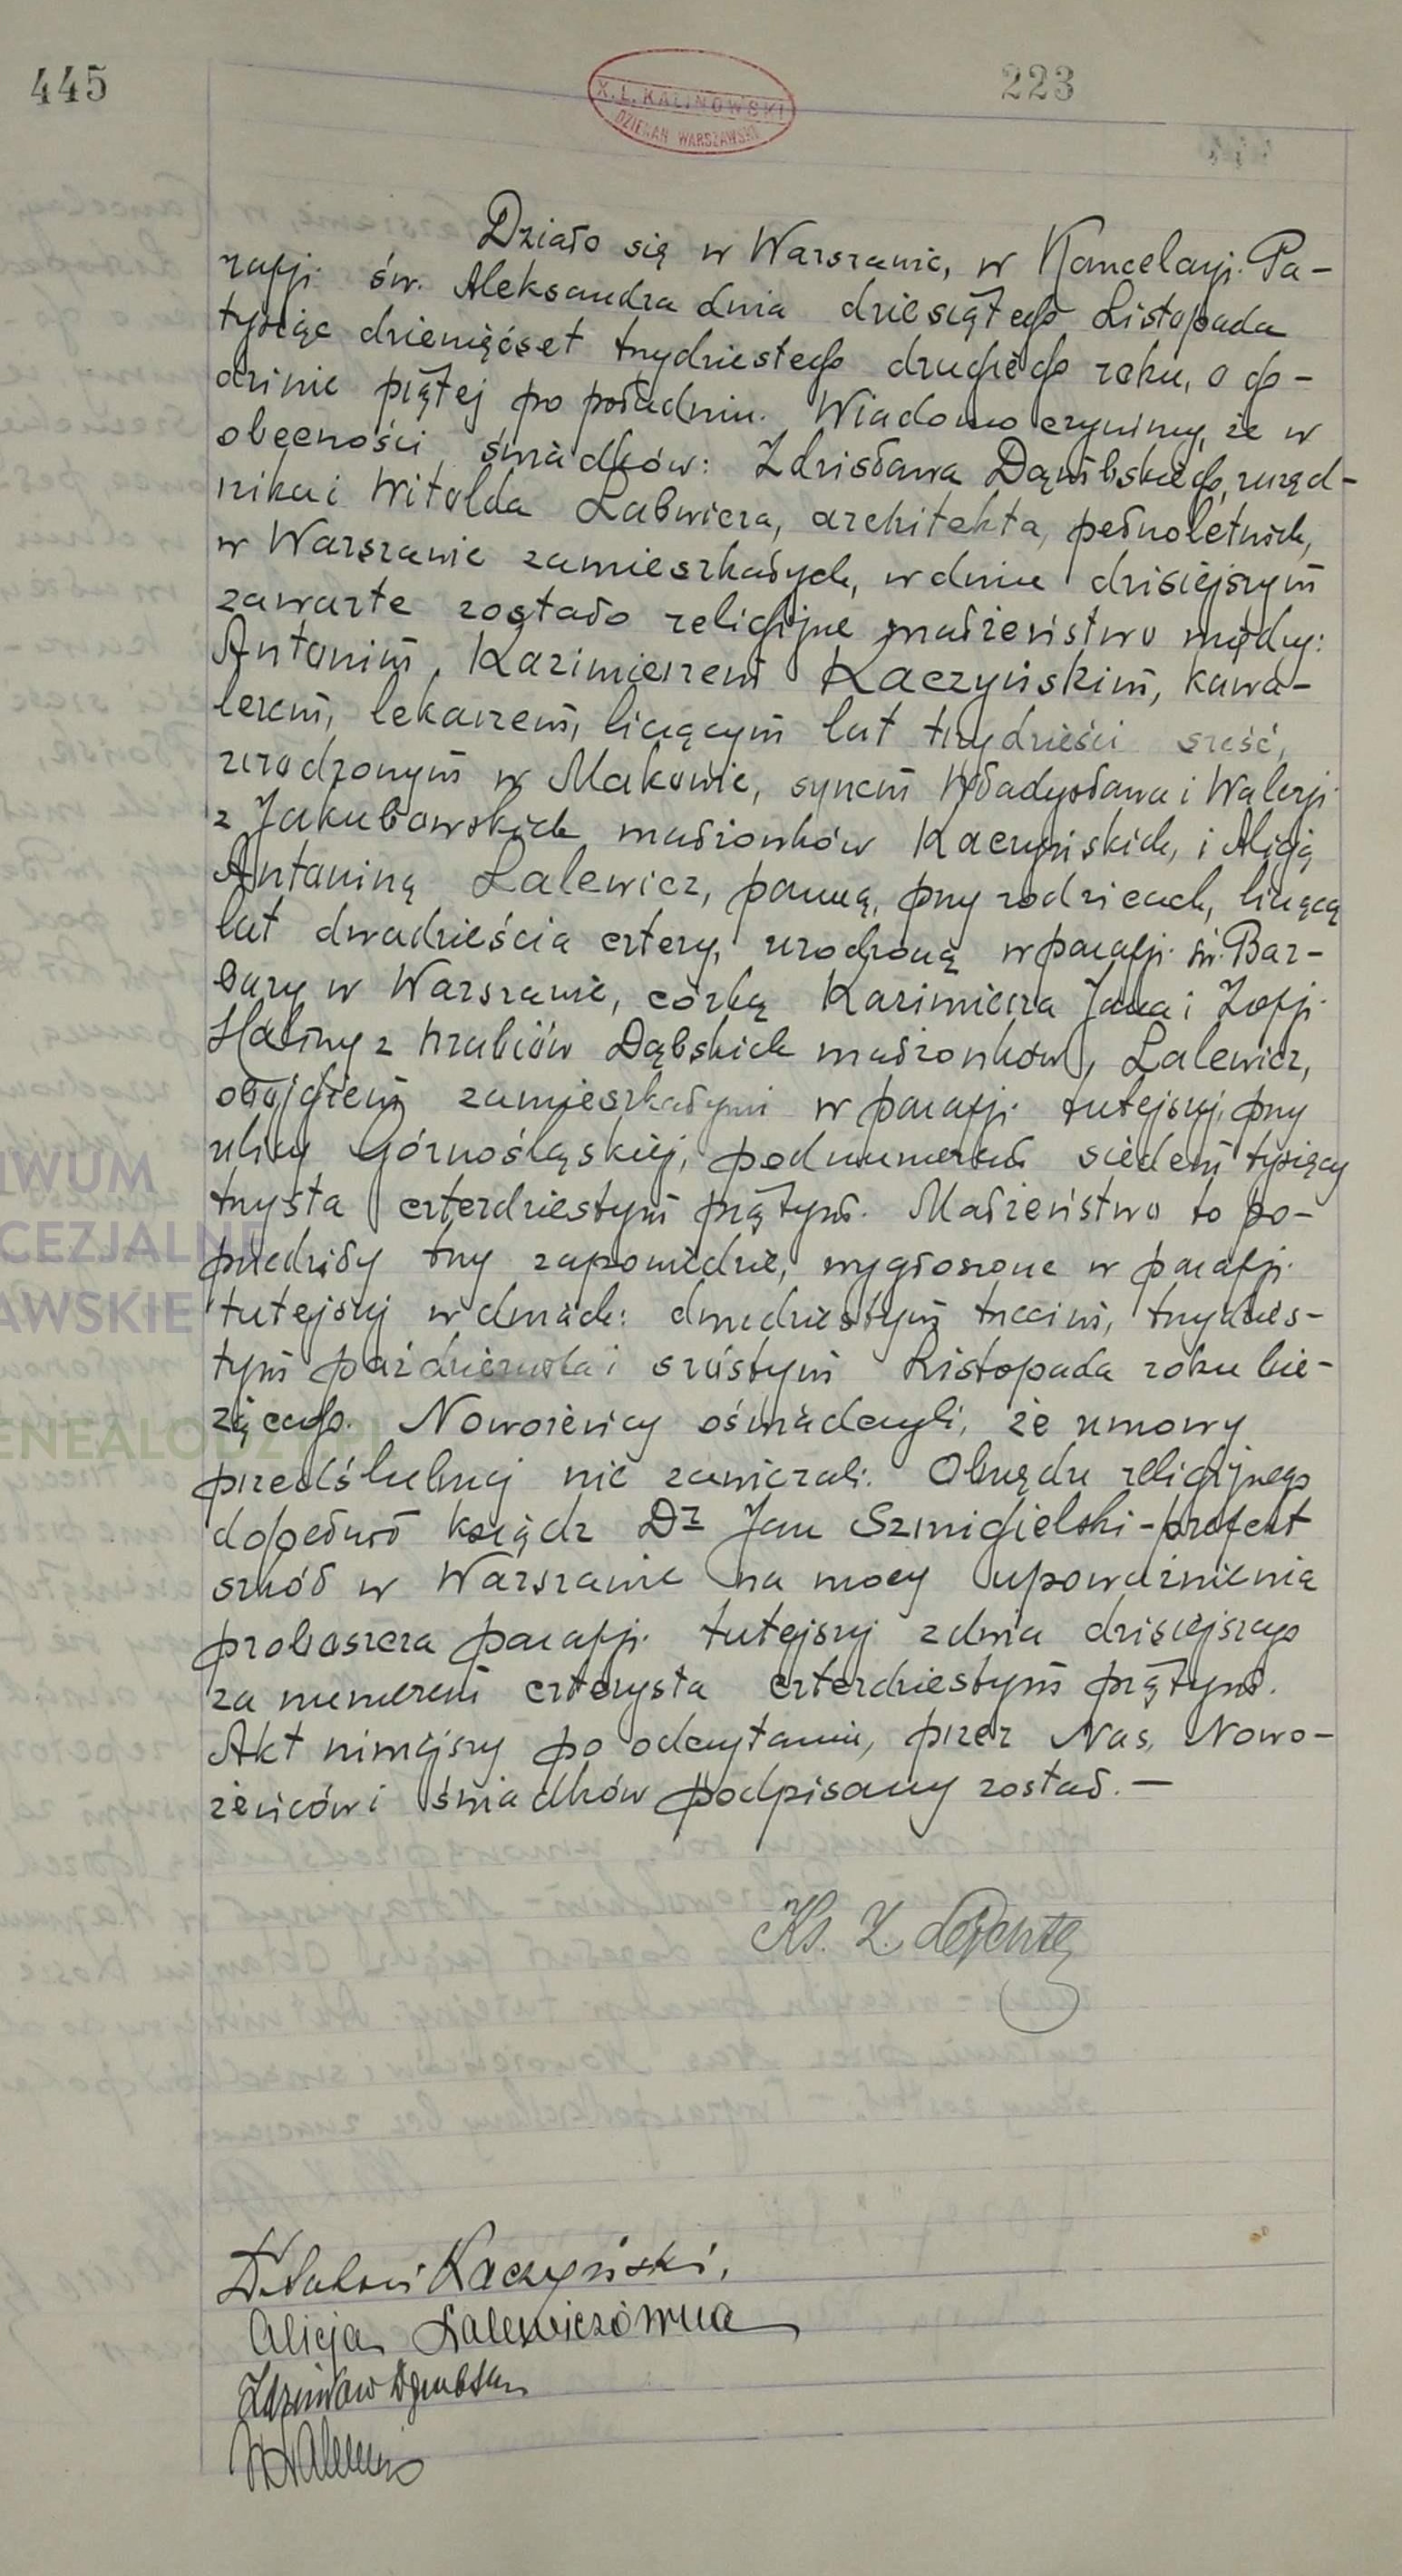 445
223
X. L. KALINOWSKI
DZIEKAN WARSZAWSKI
Działo się w Warszawie, w Kancelarji Pa-
rafji św. Aleksandra dnia dziesiątego Listopada
tysiąc dziewięćset trzydziestego drugiego roku, o go-
dzinie piątej po południu. Wiadomo czynimy, że w
obecności świadków: Zdzisława Dąmbskiego, urzęd-
nika i Witolda Lalewicza, architekta, pełnoletnich,
w Warszawie zamieszkałych, w dniu dzisiejszym
zawarte zostało religijne małżeństwo między:
Antonim, Kazimierzem Kaczyńskim, kawa-
lerem, lekarzem, liczącym lat trzydzieści sześć,
urodzonym w Makowie, synem Władysława i Walerji
z Jakubowskich małżonków Kaczyńskich, i Alicją
Antoniną Lalewicz, panną, przy rodzicach, liczącą
lat dwadzieścia cztery, urodzoną w parafji św. Bar-
bary w Warszawie, córką Kazimierza Jana i Zofji
Haliny z hrabiów Dąbskich małżonków, Lalewicz,
obojgiem zamieszkałymi w parafji tutejszej, przy
ulicy Górnośląskiej, pod numerem siedem tysięcy
trzysta czterdziestym piątym. Małżeństwo to po-
przedziły trzy zapowiedzie, wygłoszone w parafji
tutejszej w dniach: dwudziestym trzecim, trzydzies-
tym października i szóstym Listopada roku bie-
żącego. Nowożeńcy oświadczyli, że umowy
przedślubnej nie zawierali. Obrzędu religijnego
dopełnił ksiądz Dr Jan Szmigielski - prefekt
szkół w Warszawie na mocy upoważnienia
proboszcza parafji tutejszej z dnia dzisiejszego
za numerem czterysta czterdziestym piątym.
Akt niniejszy po odczytaniu, przez Nas, Nowo-
żeńców i świadków podpisany został. —
Ks. Z.
Kaczyński,
Alicja Lalewiczówna
Zdzisław Dąmbski
IWUM
CEZJALNE
AWSKIE
ENEALODZY.PL